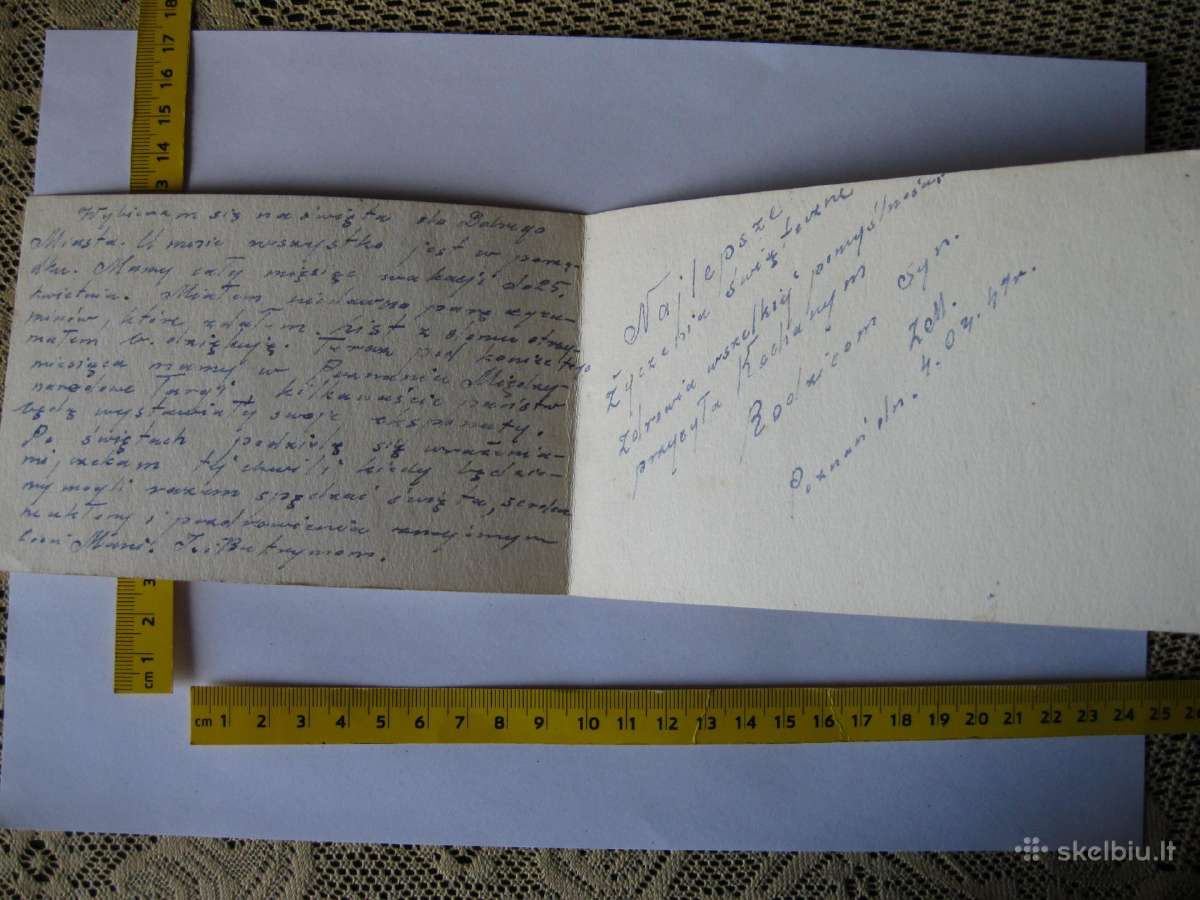 Wybieram się na święta do Dobrego
Miasta. U mnie wszystko jest w porzą-
dku. Mamy cały miesiąc wakacji do 25.
kwietnia. Miałem niedawno parę egza-
minów, które zdałem. List z domu otrzy-
małem b. dziękuję. Teraz pod koniec tego
miesiąca mamy w Poznaniu Między-
narodowe Targi kilkanaście państw
będą wystawiały swoje eksponaty.
Po świętach podzielę się wrażenia-
mi, czekam tej chwili kiedy będzie-
my mogli razem spędzać święta, serdecz
ne ukłony i pozdrowienia
Mani. Butrymom.
Najlepsze
życzenia świąteczne
zdrowia wszelkiej pomyślności
przesyła Kochanym
Rodzicom Syn.
ZM.
Poznań dn. 4.04.47r.
cm 1 2 3 4 5 6 7 8 9 10 11 12 13 14 15 16 17 18 19 20 21 22 23 24 25
cm 1 2 3
14 15 16 17 18
skelbiu.lt